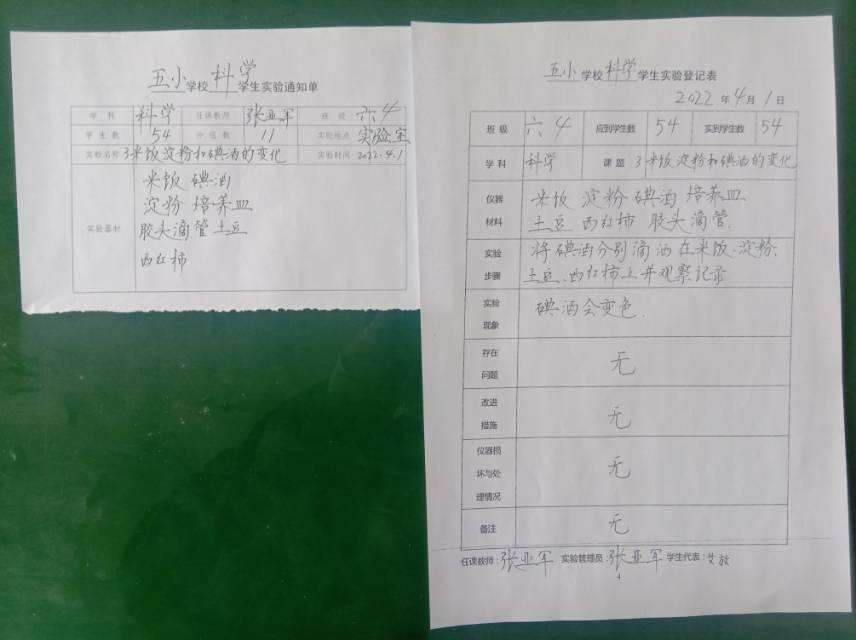 五小学校科学学生实验通知单
学科 科学 任课教师 张亚军 班级 六4
学生数 54 分组数 11 实验地点 实验室
实验名称 3米饭淀粉和碘酒的变化 实验时间 2022.4.1
实验器材
米饭 碘酒
淀粉 培养皿
胶头滴管 土豆
西红柿
五小学校科学学生实验登记表
2022年4月1日
班级 六4 应到学生数 54 实到学生数 54
学科 科学 课题 3米饭淀粉和碘酒的变化
仪器材料
米饭 淀粉 碘酒 培养皿
土豆 西红柿 胶头滴管.
实验步骤
将碘酒分别滴洒在米饭、淀粉、
土豆、西红柿上并观察记录
实验现象
碘酒会变色.
存在问题 无
改进措施 无
仪器损坏与处理情况 无
备注 无
任课教师：张亚军 实验管理员：张亚军 学生代表：